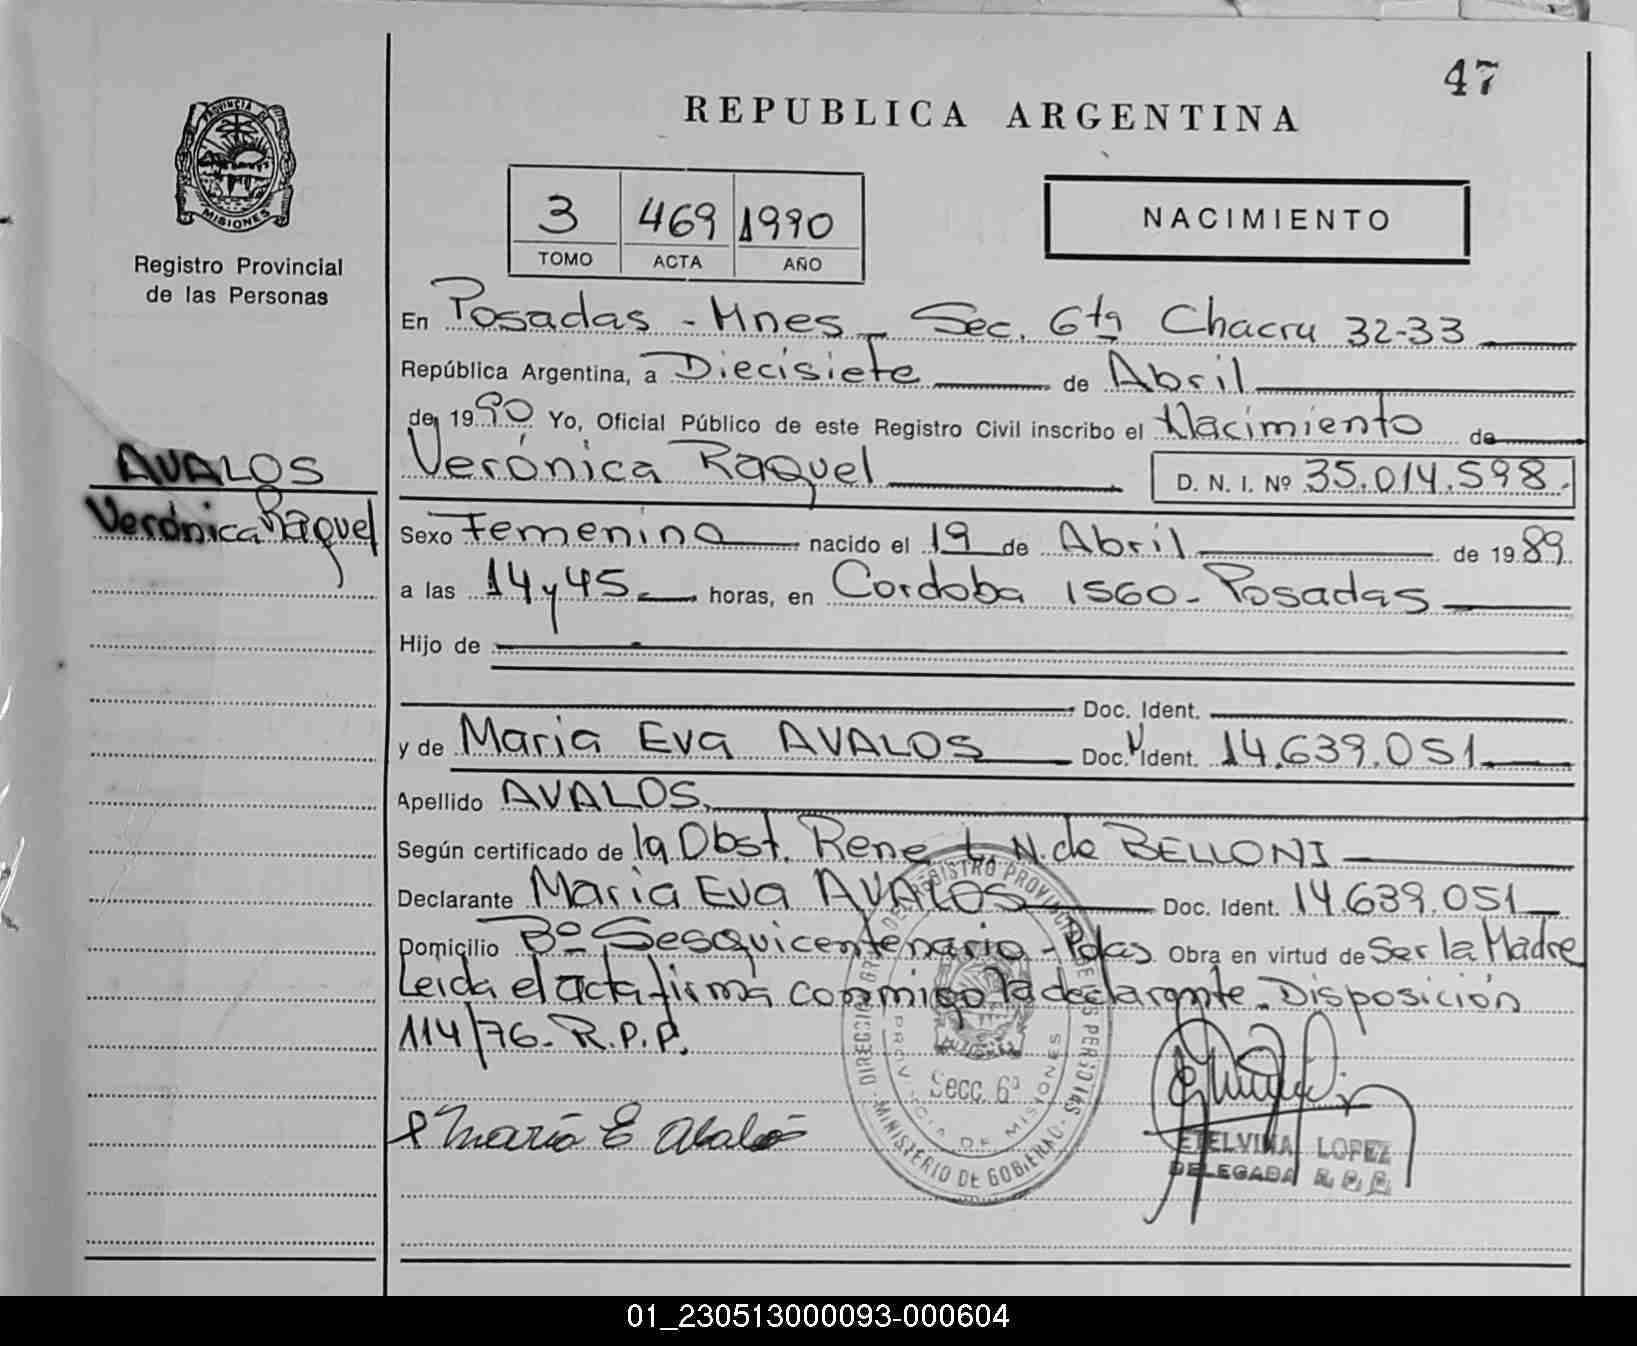 47
REPUBLICA ARGENTINA
PROVINCIA
MISIONES
Registro Provincial
de las Personas
3 469 1990
TOMO ACTA AÑO
NACIMIENTO
En Posadas - Mnes - Sec. 6ta Chacra 32-33
República Argentina, a Diecisiete de Abril
de 1990 Yo, Oficial Público de este Registro Civil inscribo el Nacimiento de
Verónica Raquel D. N. I. Nº 35.014.598.
AVALOS
Verónica Raquel
Sexo Femenino nacido el 19 de Abril de 1989
a las 14 y 45 horas, en Cordoba 1560 - Posadas
Hijo de
Doc. Ident.
y de Maria Eva AVALOS Doc. Ident. 14.639.051
Apellido AVALOS
Según certificado de la Obst. Rene L. N. de BELLONI
Declarante Maria Eva AVALOS Doc. Ident. 14.639.051
Domicilio Bº Sesquicentenario - Pdas Obra en virtud de Ser la Madre
Leida el acta firma conmigo la declarante. Disposición
114/76 - R.P.P.
DIRECCION GRAL DEL REGISTRO PROVINCIAL DE LAS PERSONAS
PROVINCIA DE MISIONES
Secc. 6ª
MINISTERIO DE GOBIERNO
Maria E Avalos
ETELVINA LOPEZ
DELEGADA
01_230513000093-000604